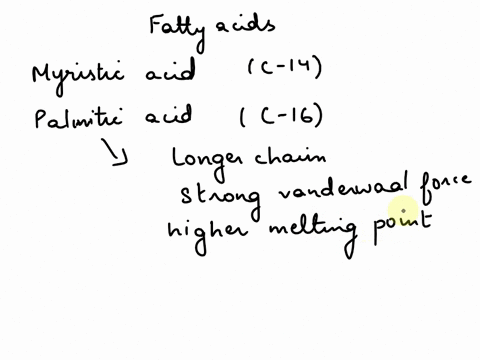 Fatty acids
Myristic acid (C-14)
Palmitic acid (C-16)
Longer chain
strong vanderwaal force
higher melting point